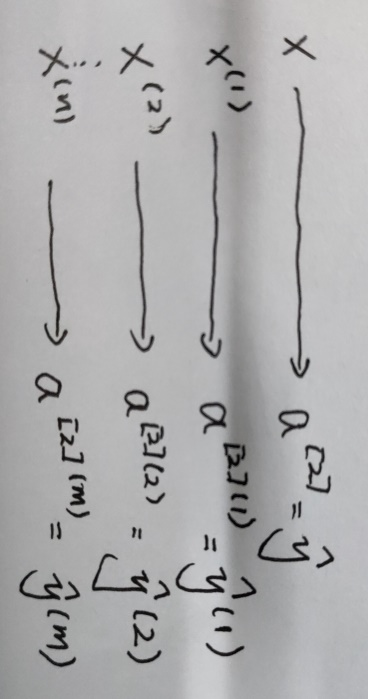 x ⟶ a^[2] = ŷ
x^(1) ⟶ a^[2](1) = ŷ^(1)
x^(2) ⟶ a^[2](2) = ŷ^(2)
⋮
x^(n) ⟶ a^[2](m) = ŷ^(m)